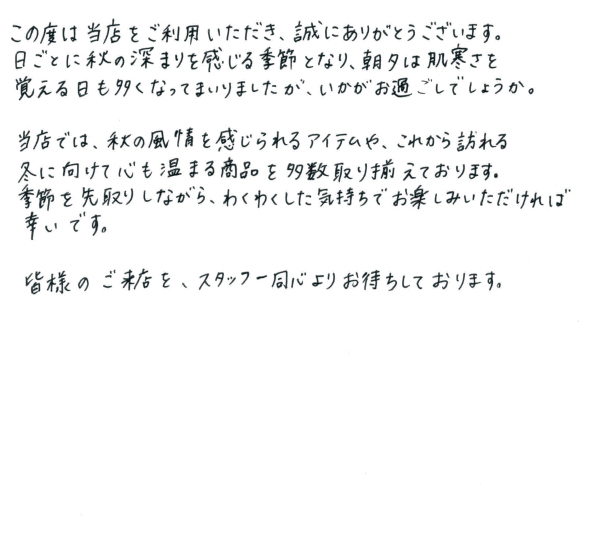 この度は当店をご利用いただき、誠にありがとうございます。
日ごとに秋の深まりを感じる季節となり、朝夕は肌寒さを
覚える日も多くなってまいりましたが、いかがお過ごしでしょうか。
当店では、秋の風情を感じられるアイテムや、これから訪れる
冬に向けて心も温まる商品を多数取り揃えております。
季節を先取りしながら、わくわくした気持ちでお楽しみいただければ
幸いです。
皆様のご来店を、スタッフ一同心よりお待ちしております。